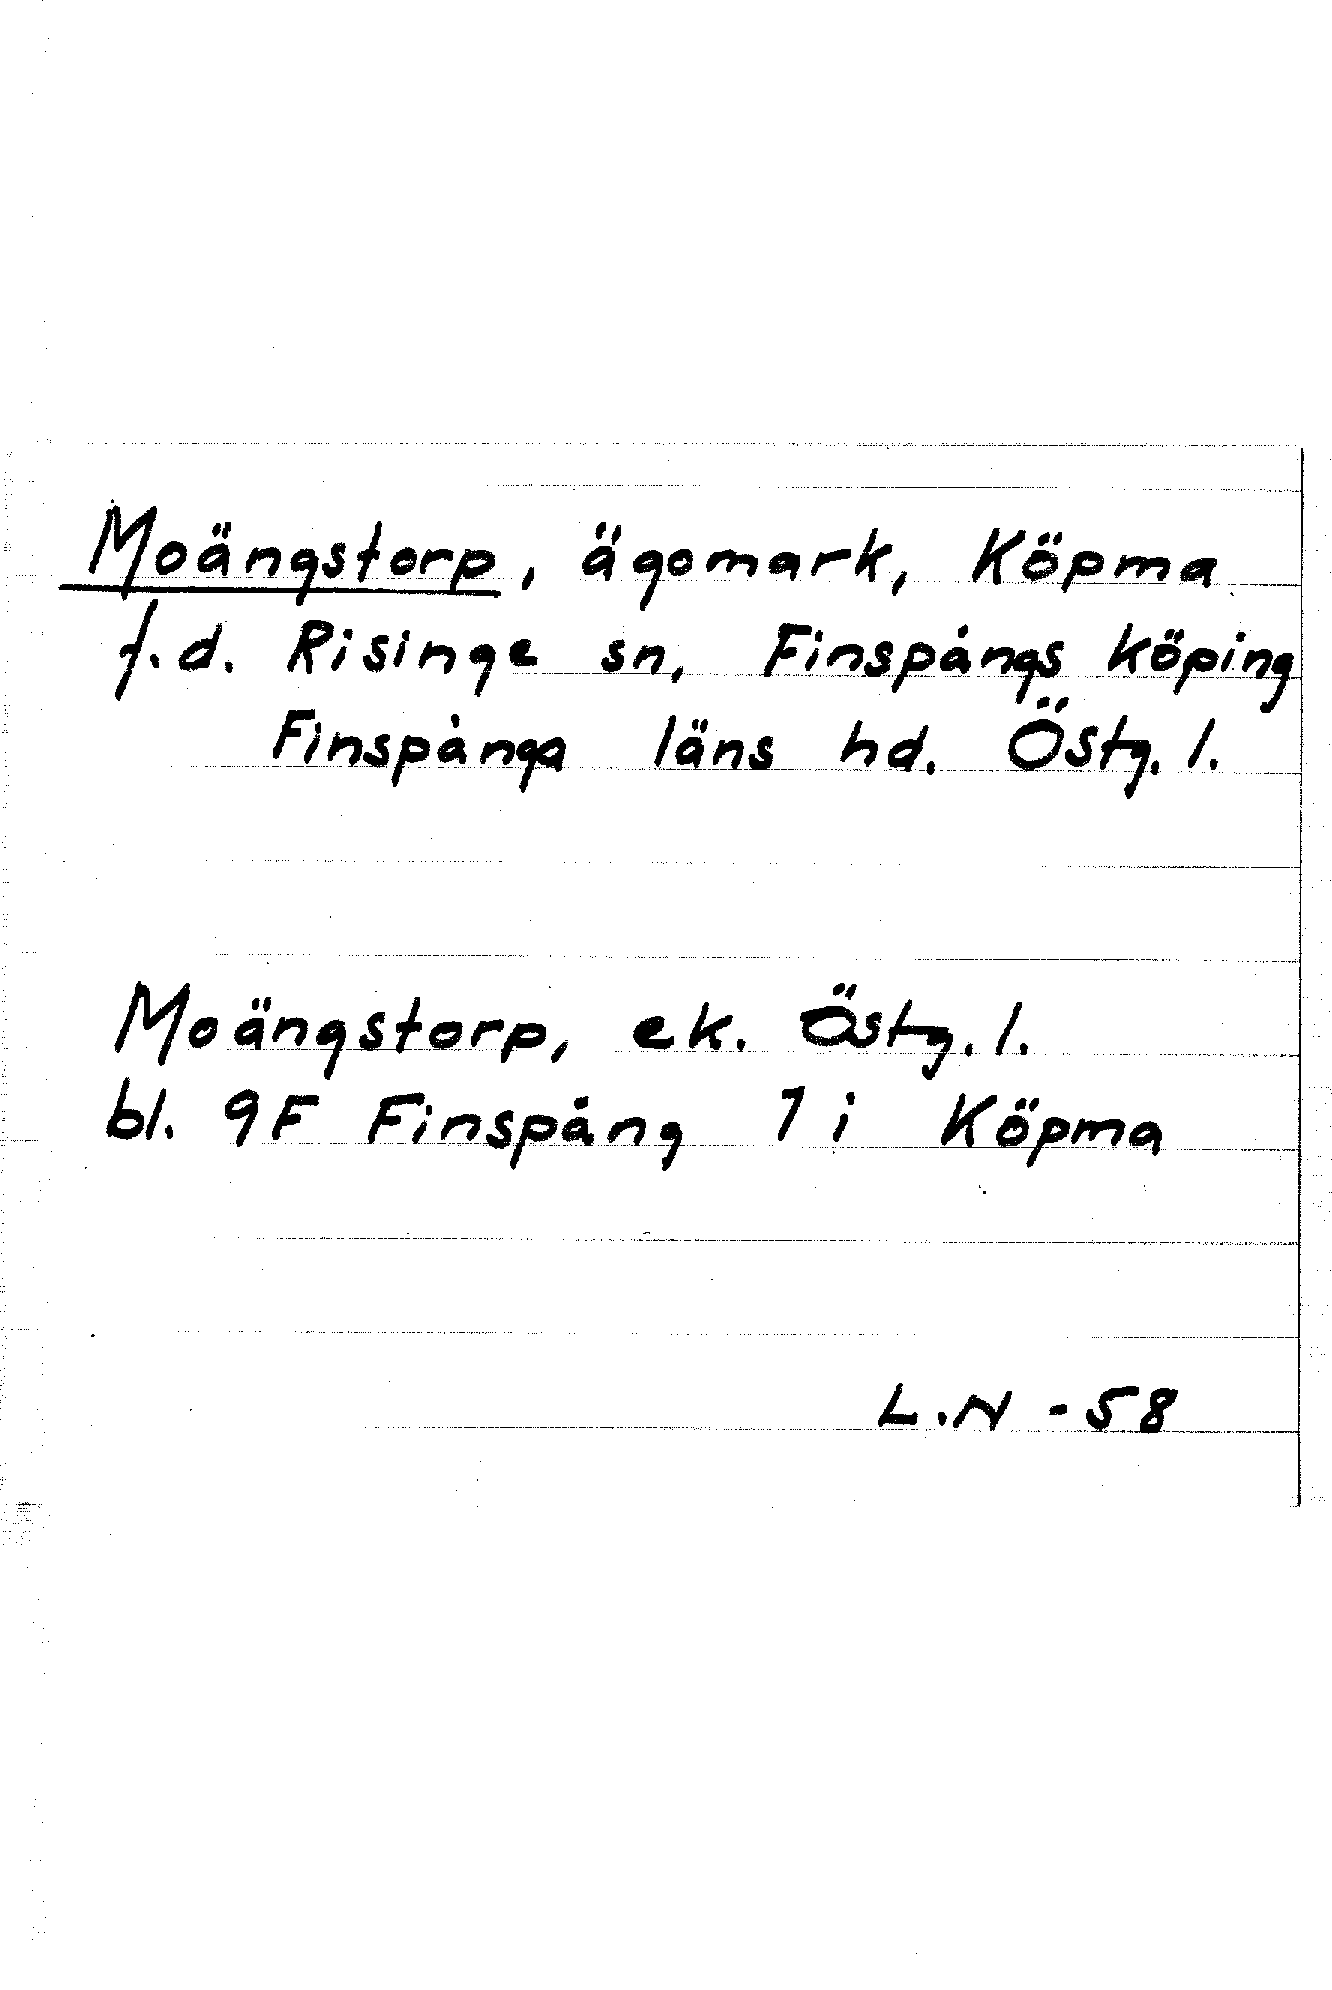 Moängstorp, ägomark, Köpma
f.d. Risinge sn, Finspångs köping
Finspånga läns hd. Östg. l.
Moängstorp, ek. Östg. l.
bl. 9F Finspång 7 i Köpma
L.N - 58